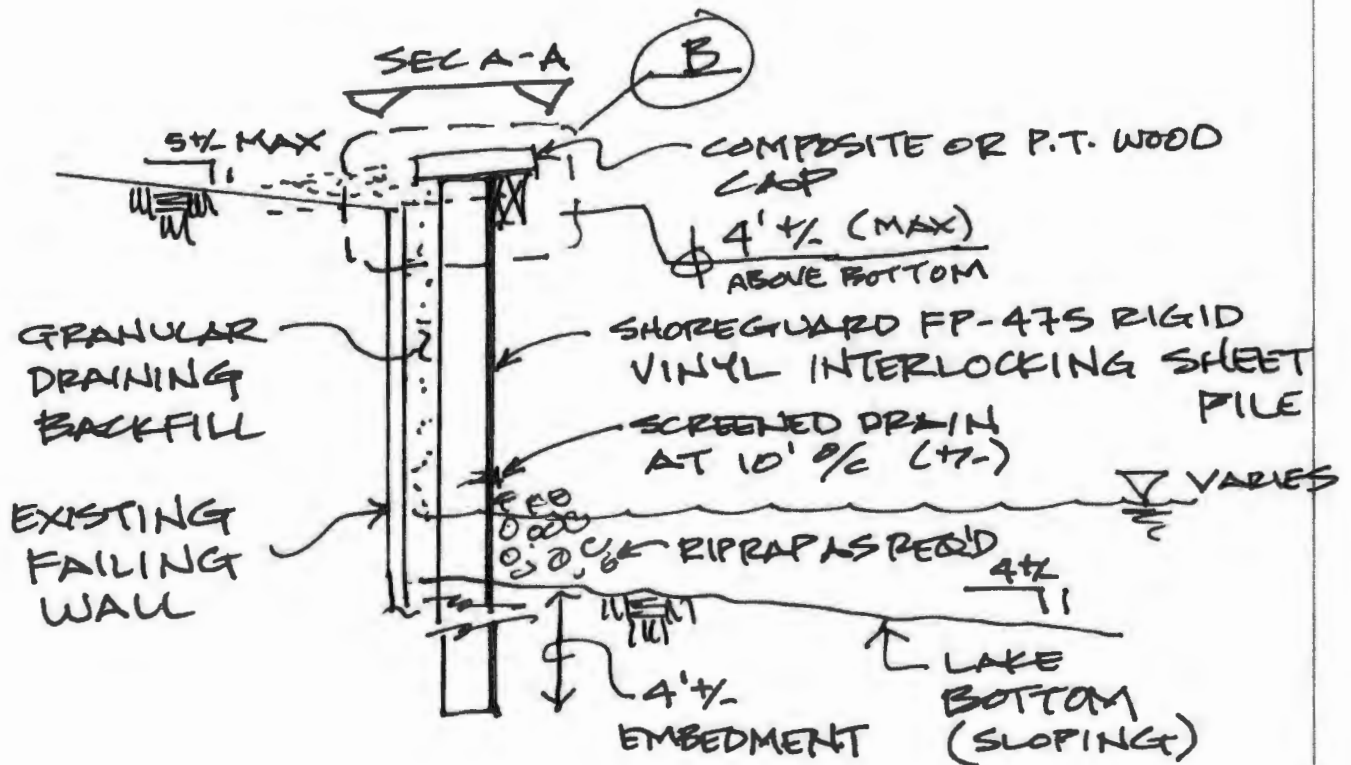 SEC A-A
B
5+/- MAX
1
COMPOSITE OR P.T. WOOD
CAP
4'+/- (MAX)
ABOVE BOTTOM
GRANULAR
DRAINING
BACKFILL
SHOREGUARD FP-475 RIGID
VINYL INTERLOCKING SHEET
PILE
SCREENED DRAIN
AT 10' O/C (+/-)
VARIES
EXISTING
FAILING
WALL
RIPRAP AS REQ'D
4+/-
1
LAKE
BOTTOM
(SLOPING)
4'+/-
EMBEDMENT